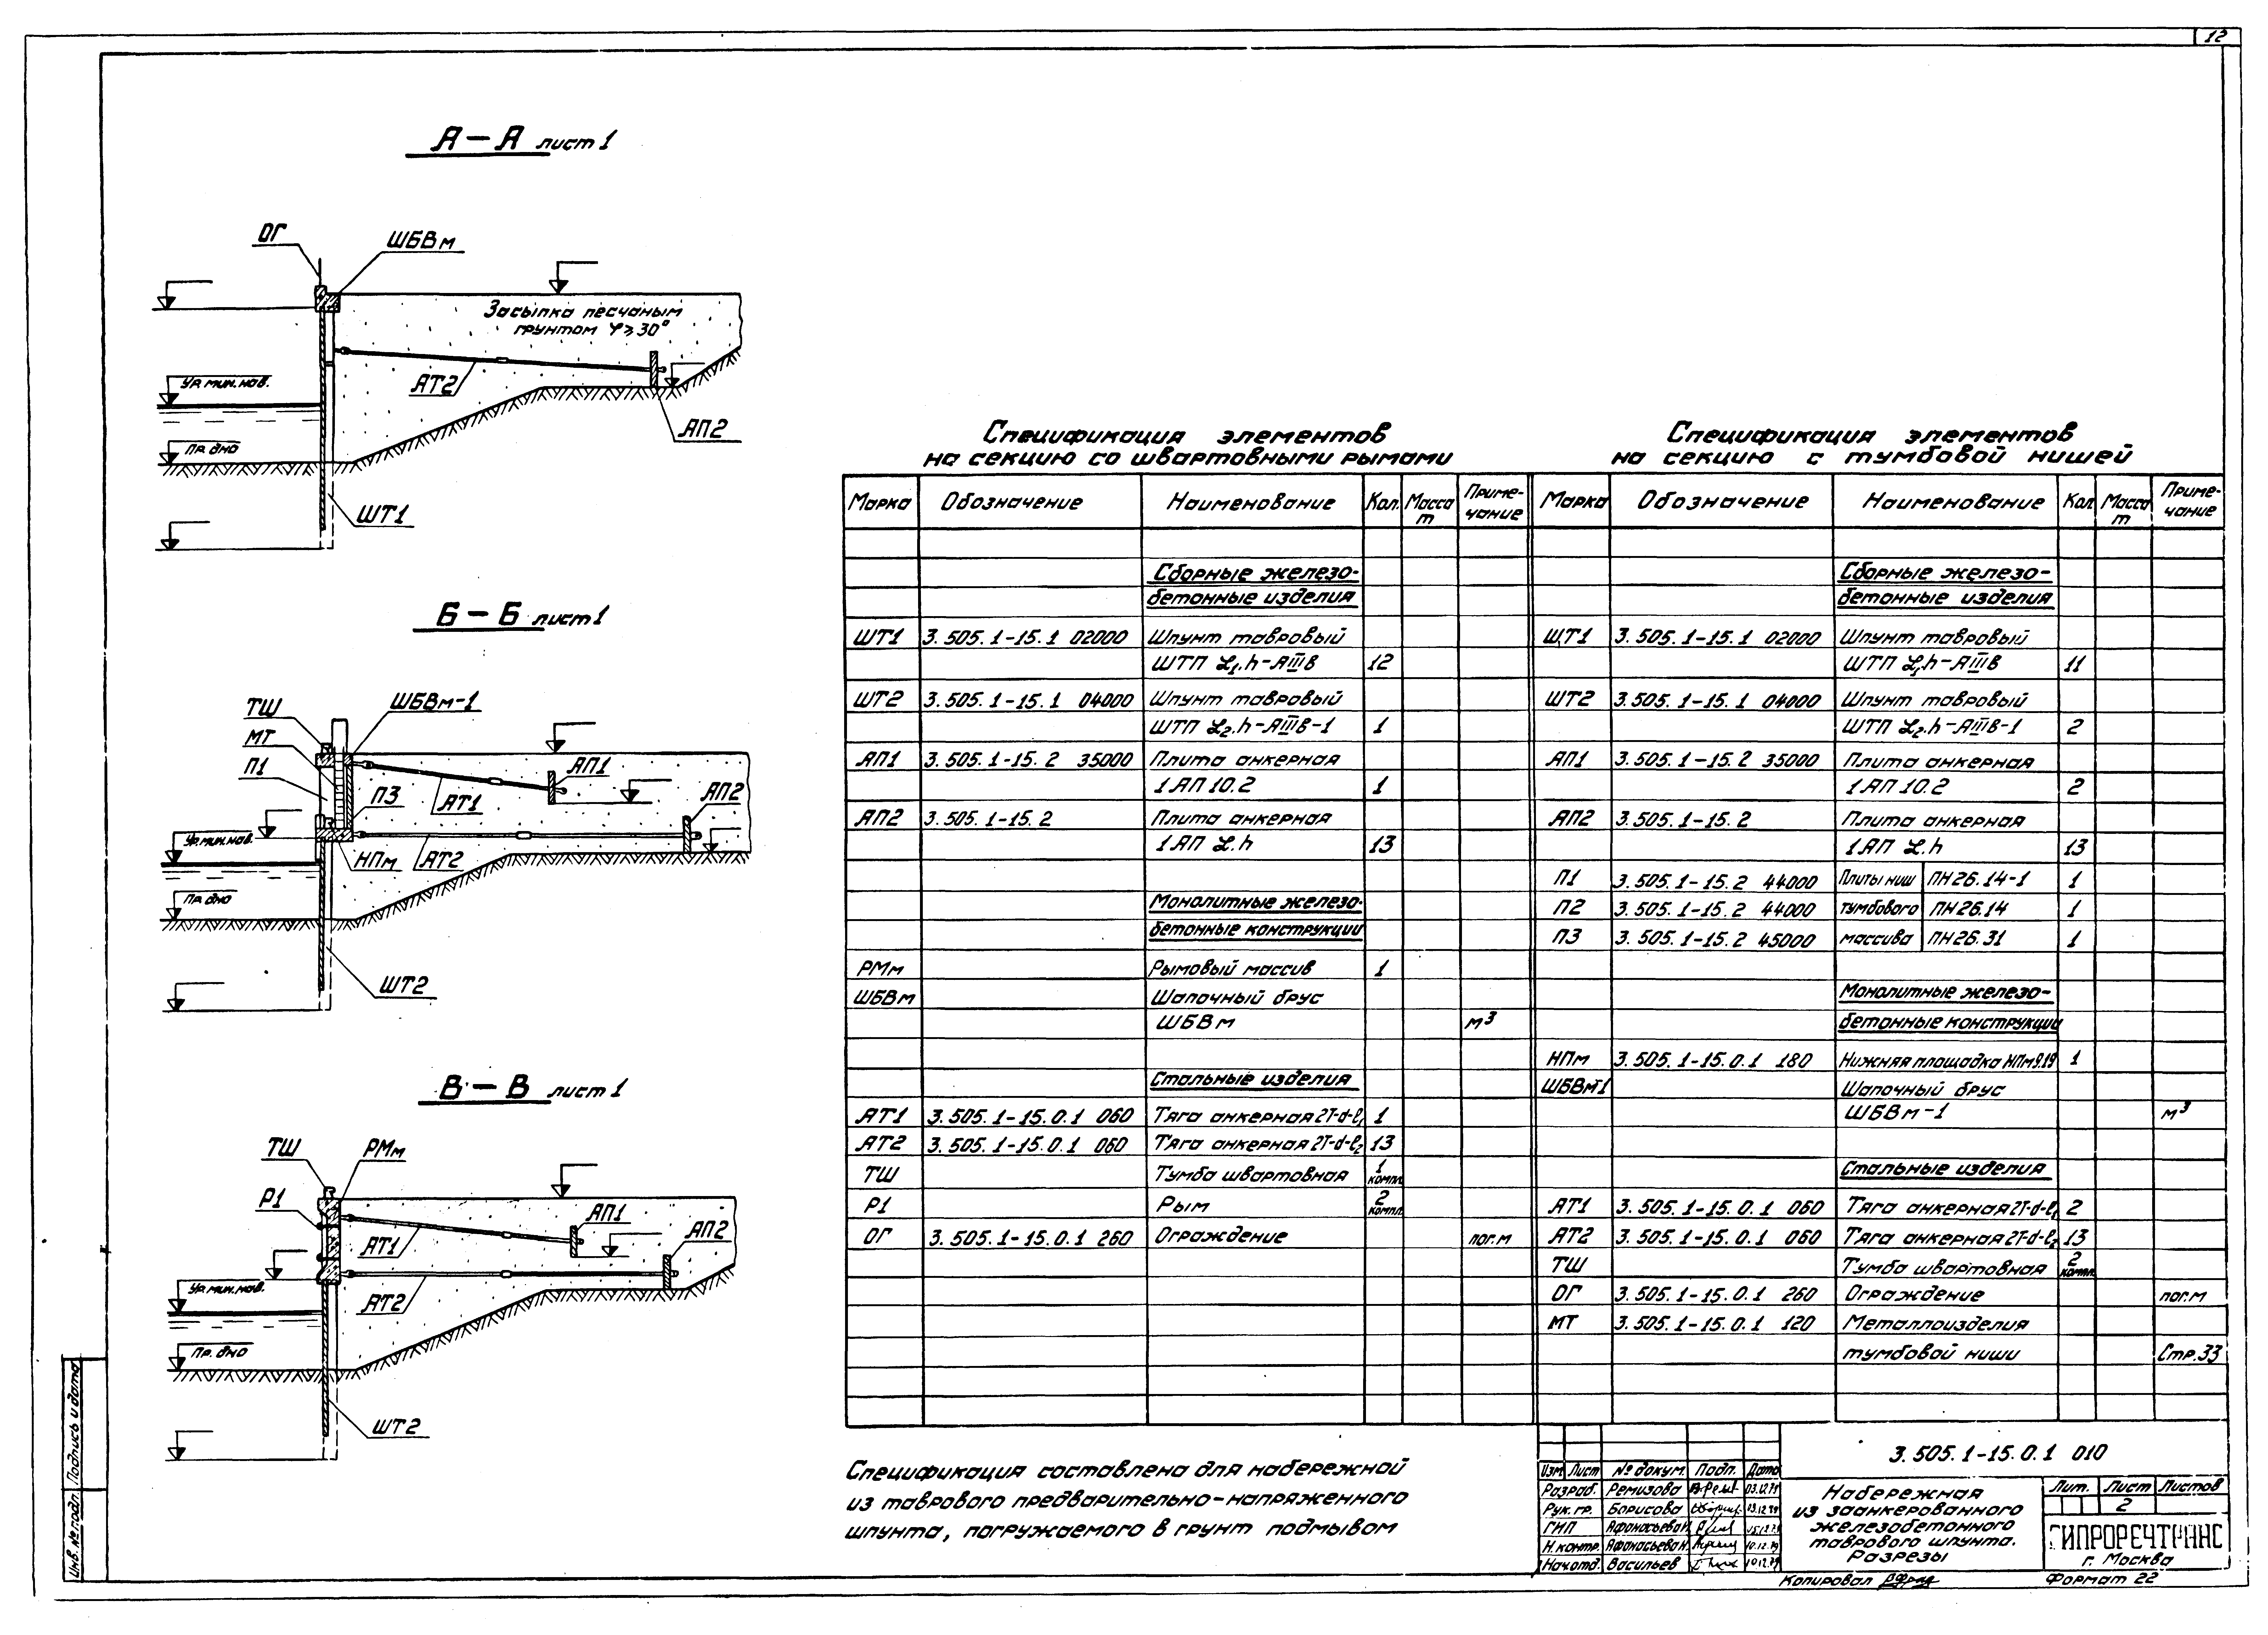 12
А – А лист 1
ОГ
ШБВм
Засыпка песчаным
грунтом φ ≥ 30°
Ур. мин. нав.
АТ2
АП2
Пр. дно
ШТ1
Б – Б лист 1
ТШ
ШБВм-1
МТ
П1
АП1
АТ1
П3
АП2
Ур. мин. нав.
НПм
АТ2
Пр. дно
ШТ2
В – В лист 1
ТШ
РМм
Р1
АП1
АТ1
АП2
Ур. мин. нав.
АТ2
Пр. дно
ШТ2
Спецификация элементов
на секцию со швартовными рымами
Марка Обозначение Наименование Кол. Масса т Приме-чание
Сборные железо-
бетонные изделия
ШТ1 3.505.1-15.1 02000 Шпунт тавровый
ШТП L₁.h-АIIIв 12
ШТ2 3.505.1-15.1 04000 Шпунт тавровый
ШТП L₂.h-АIIIв-1 1
АП1 3.505.1-15.2 35000 Плита анкерная
1АП 10.2 1
АП2 3.505.1-15.2 Плита анкерная
1АП L.h 13
Монолитные железо-
бетонные конструкции
РМм Рымовый массив 1
ШБВм Шапочный брус
ШБВм м³
Стальные изделия
АТ1 3.505.1-15.0.1 060 Тяга анкерная 2Т-d-ℓ₁ 1
АТ2 3.505.1-15.0.1 060 Тяга анкерная 2Т-d-ℓ₂ 13
ТШ Тумба швартовная 1 компл.
Р1 Рым 2 компл.
ОГ 3.505.1-15.0.1 260 Ограждение пог.м
Спецификация элементов
на секцию с тумбовой нишей
Марка Обозначение Наименование Кол. Масса т Приме-чание
Сборные железо-
бетонные изделия
ШТ1 3.505.1-15.1 02000 Шпунт тавровый
ШТП L₁.h-АIIIв 11
ШТ2 3.505.1-15.1 04000 Шпунт тавровый
ШТП L₂.h-АIIIв-1 2
АП1 3.505.1-15.2 35000 Плита анкерная
1АП 10.2 2
АП2 3.505.1-15.2 Плита анкерная
1АП L.h 13
П1 3.505.1-15.2 44000 Плиты ниш ПН26.14-1 1
П2 3.505.1-15.2 44000 тумбового ПН26.14 1
П3 3.505.1-15.2 45000 массива ПН26.31 1
Монолитные железо-
бетонные конструкции
НПм 3.505.1-15.0.1 180 Нижняя площадка НПм9.19 1
ШБВм-1 Шапочный брус
ШБВм-1 м³
Стальные изделия
АТ1 3.505.1-15.0.1 060 Тяга анкерная 2Т-d-ℓ₁ 2
АТ2 3.505.1-15.0.1 060 Тяга анкерная 2Т-d-ℓ₂ 13
ТШ Тумба швартовная 2 компл.
ОГ 3.505.1-15.0.1 260 Ограждение пог.м
МТ 3.505.1-15.0.1 120 Металлоизделия
тумбовой ниши Стр.33
Спецификация составлена для набережной
из таврового предварительно-напряженного
шпунта, погружаемого в грунт подмывом
Инв. № подл. Подпись и дата
3.505.1-15.0.1 010
Изм Лист № докум. Подп. Дата
Разраб. Ремизова 03.12.79
Рук. гр. Борисова
ГИП Афанасьева Н.
Н. контр. Афанасьева Н. 10.12.79
Нач. отд. Васильев 10.12.79
Набережная
из заанкерованного
железобетонного
таврового шпунта.
Разрезы
Лит. Лист Листов
2
ГИПРОРЕЧТРАНС
г. Москва
Копировал
Формат 22